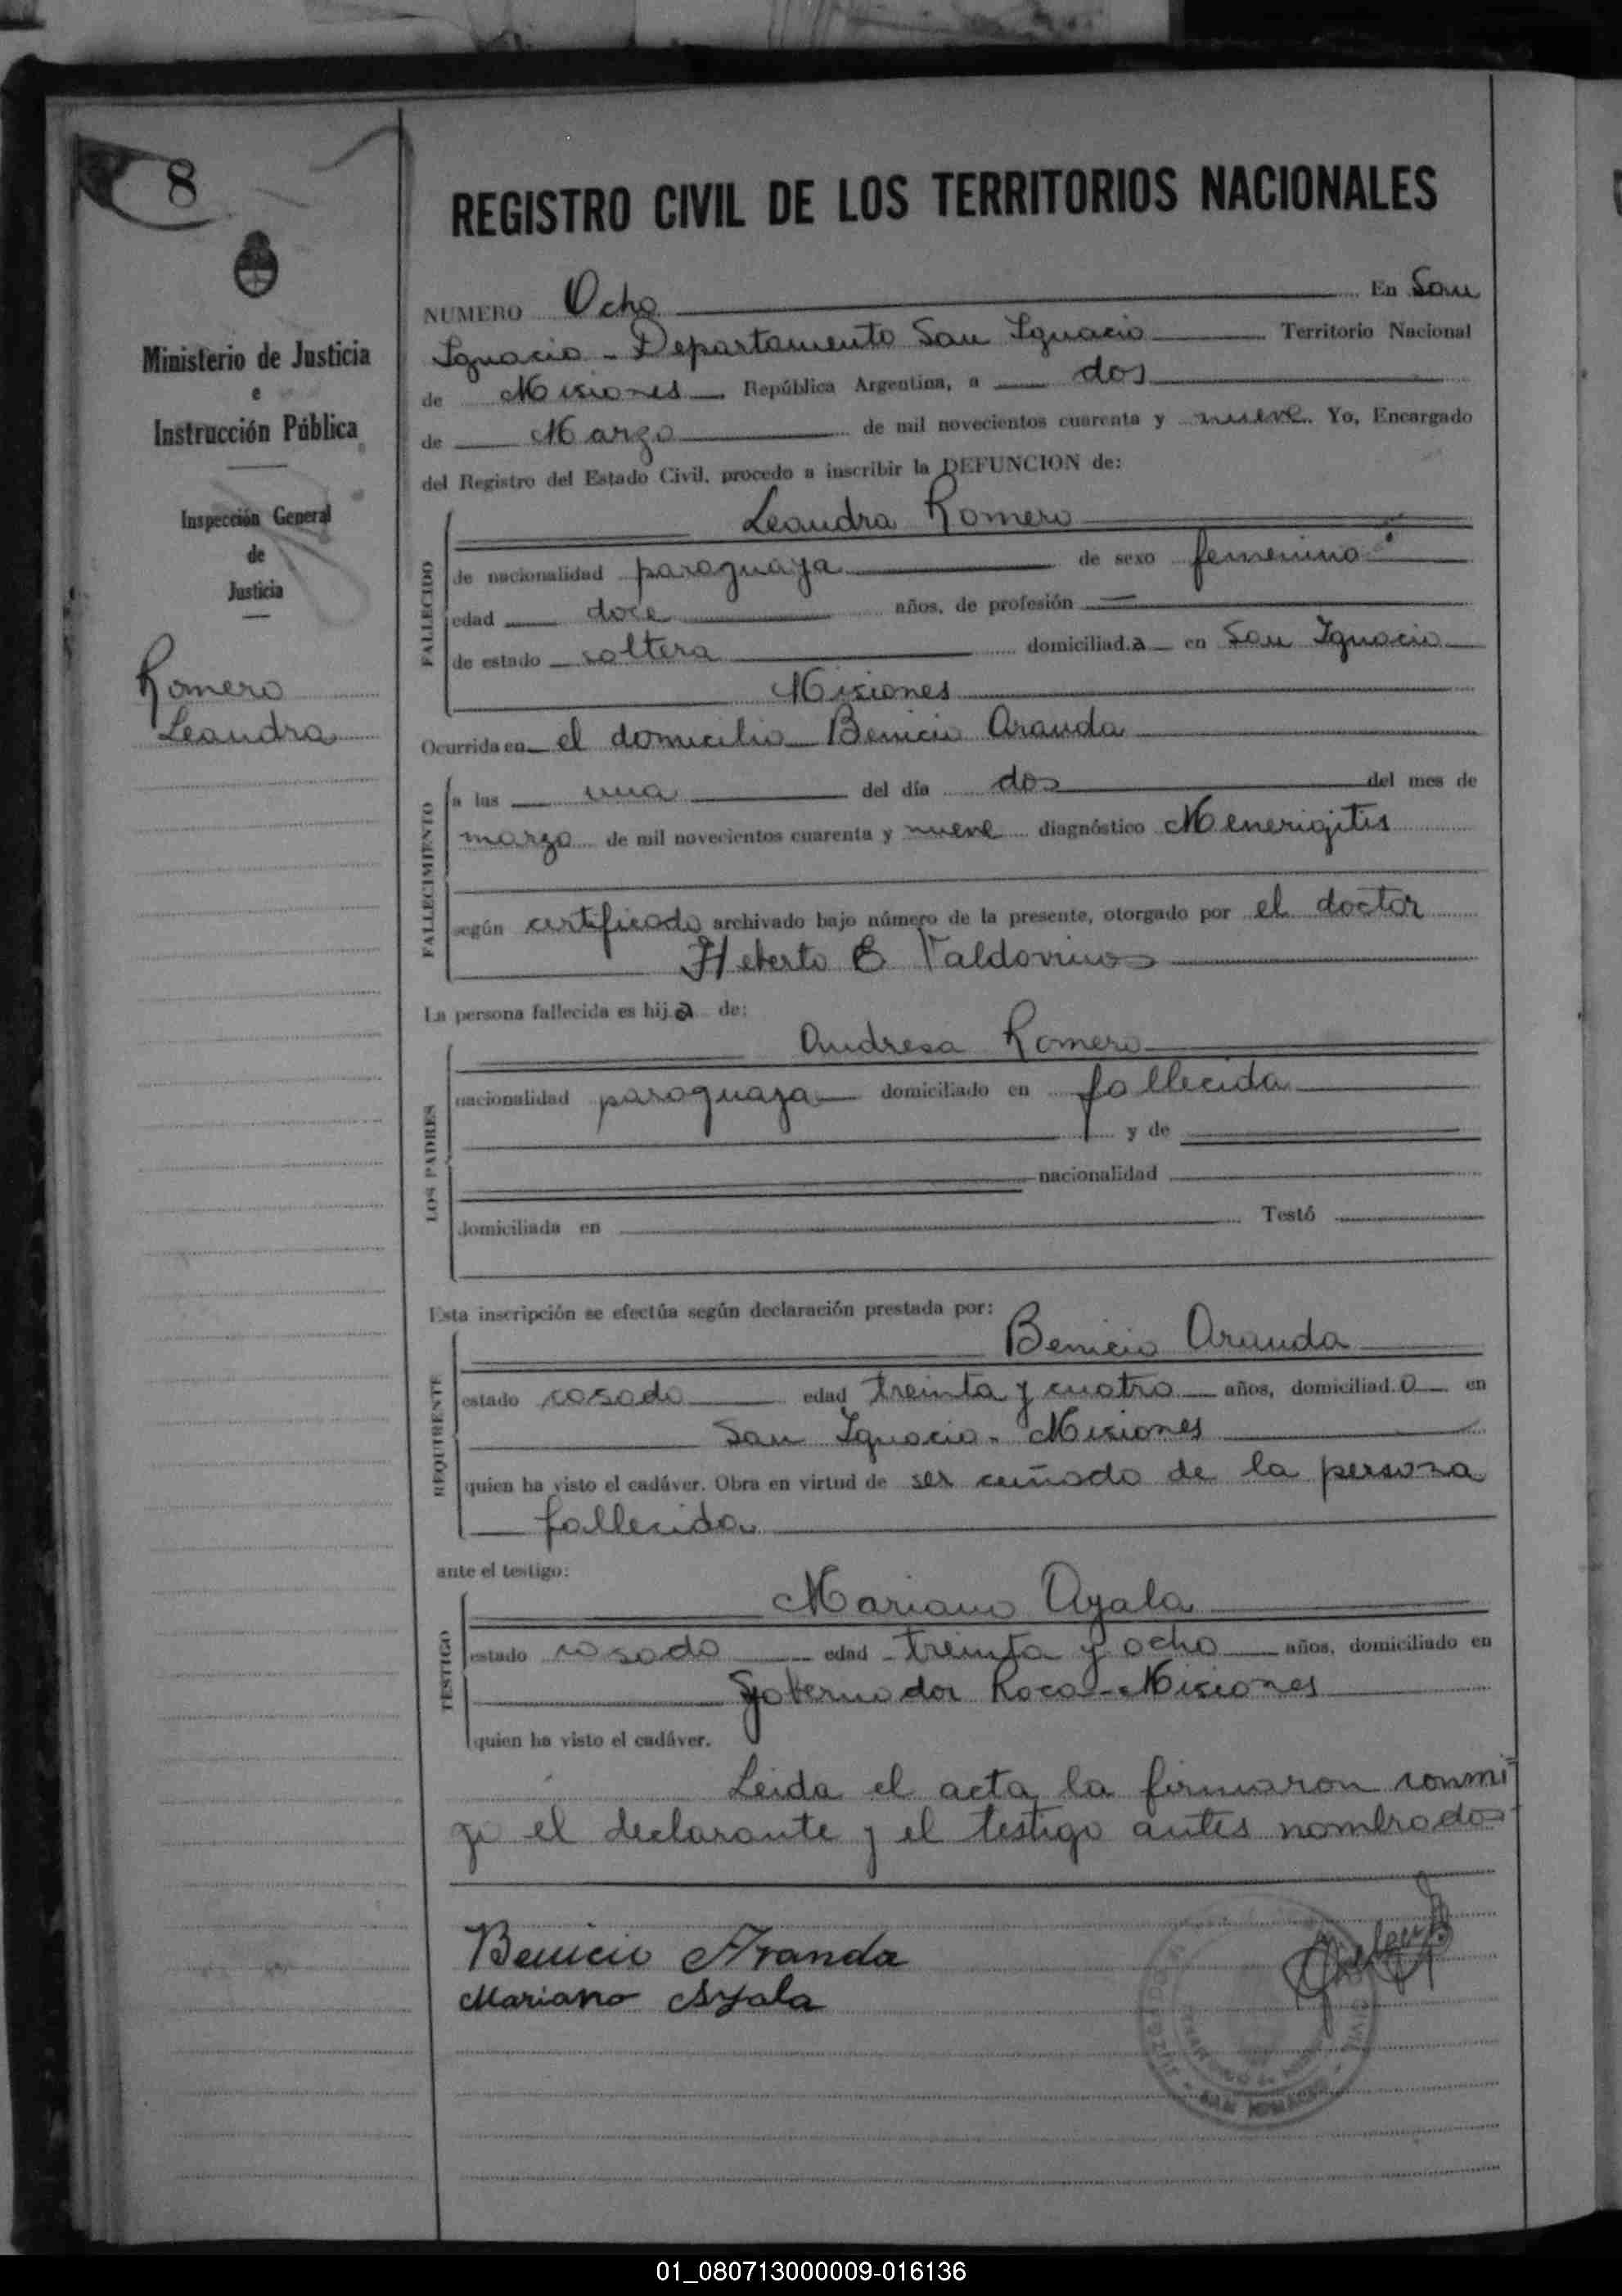 8
Ministerio de Justicia
e
Instrucción Pública
Inspección General
de
Justicia
Romero
Leandra
REGISTRO CIVIL DE LOS TERRITORIOS NACIONALES
NUMERO Ocho En San
Ignacio - Departamento San Ignacio Territorio Nacional
de Misiones República Argentina, a dos
de Marzo de mil novecientos cuarenta y nueve. Yo, Encargado
del Registro del Estado Civil, procedo a inscribir la DEFUNCION de:
FALLECIDO
Leandra Romero
de nacionalidad paraguaya de sexo femenino
edad doce años, de profesión —
de estado soltera domiciliad.a en San Ignacio
Misiones
Ocurrida en el domicilio Benicio Aranda
FALLECIMIENTO
a las una del día dos del mes de
marzo de mil novecientos cuarenta y nueve diagnóstico Menerigitis
según certificado archivado bajo número de la presente, otorgado por el doctor
Heberto E Valdovinos
La persona fallecida es hij.a de:
LOS PADRES
Andresa Romero
nacionalidad paraguaya domiciliado en fallecida
y de
nacionalidad
domiciliada en Testó
Esta inscripción se efectúa según declaración prestada por:
REQUIRENTE
Benicio Aranda
estado casado edad treinta y cuatro años, domiciliad.o en
San Ignacio - Misiones
quien ha visto el cadáver. Obra en virtud de ser cuñado de la persona
fallecida
ante el testigo:
TESTIGO
Mariano Ayala
estado casado edad treinta y ocho años, domiciliado en
Gobernador Roca - Misiones
quien ha visto el cadáver.
Leida el acta la firmaron conmi-
go el declarante y el testigo antes nombrados
Benicio Aranda
Mariano Ayala
01_080713000009-016136